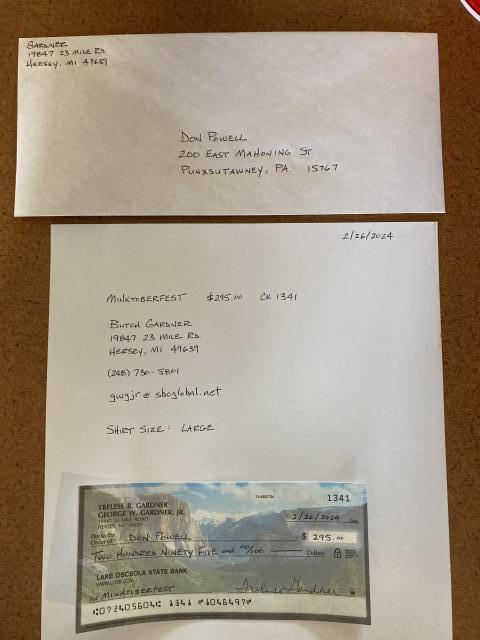 GARDNER
19847 23 MILE RD
HERSEY, MI 49639
DON POWELL
200 EAST MAHONING ST.
PUNXSUTAWNEY, PA. 15767
2/26/2024
MINKTOBERFEST $295.00 CK 1341
BUTCH GARDNER
19847 23 MILE RD.
HERSEY, MI 49639
(248) 730-5801
gwgjr@sbcglobal.net
SHIRT SIZE: LARGE
1341
TRELESE R. GARDNER
GEORGE W. GARDNER, JR.
19847 23 MILE ROAD
HERSEY, MI 49639
2/26/2024
Date
Pay to the
Order of DON POWELL $ 295.00
TWO HUNDRED NINETY FIVE and 00/100 Dollars
LAKE OSCEOLA STATE BANK
For MINKTOBERFEST Trelese Gardner